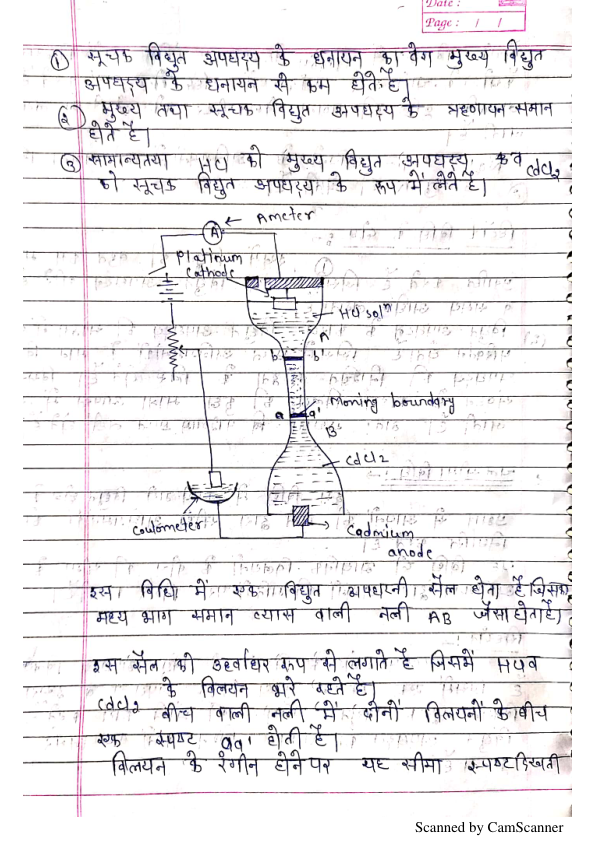 Date :
Page : / /
① सूचक विद्युत अपघट्य के धनायन का वेग मुख्य विद्युत
अपघट्य के धनायन से कम होते है।
② मुख्य तथा सूचक विद्युत अपघट्य के ऋणायन समान
होते है।
③ सामान्यतया HCl को मुख्य विद्युत अपघट्य व CdCl2
को सूचक विद्युत अपघट्य के रूप में लेते है।
Ameter
A
Platinum
cathode
HCl solⁿ
A
b b'
a a' Moning boundary
B
CdCl2
Coulometer
Cadmium
anode
इस विधि में एक विद्युत अपघटनी सैल होता है जिसका
मध्य भाग समान व्यास वाली नली AB जैसा होता है।
इस सैल को उर्ध्वाधर रूप से लगाते है जिसमें HCl व
CdCl2 के विलयन भरे रहते है।
बीच वाली नली में दोनों विलयनों के बीच
एक स्पष्ट aa' होती है।
विलयन के रंगीन होने पर यह सीमा स्पष्ट दिखती
Scanned by CamScanner